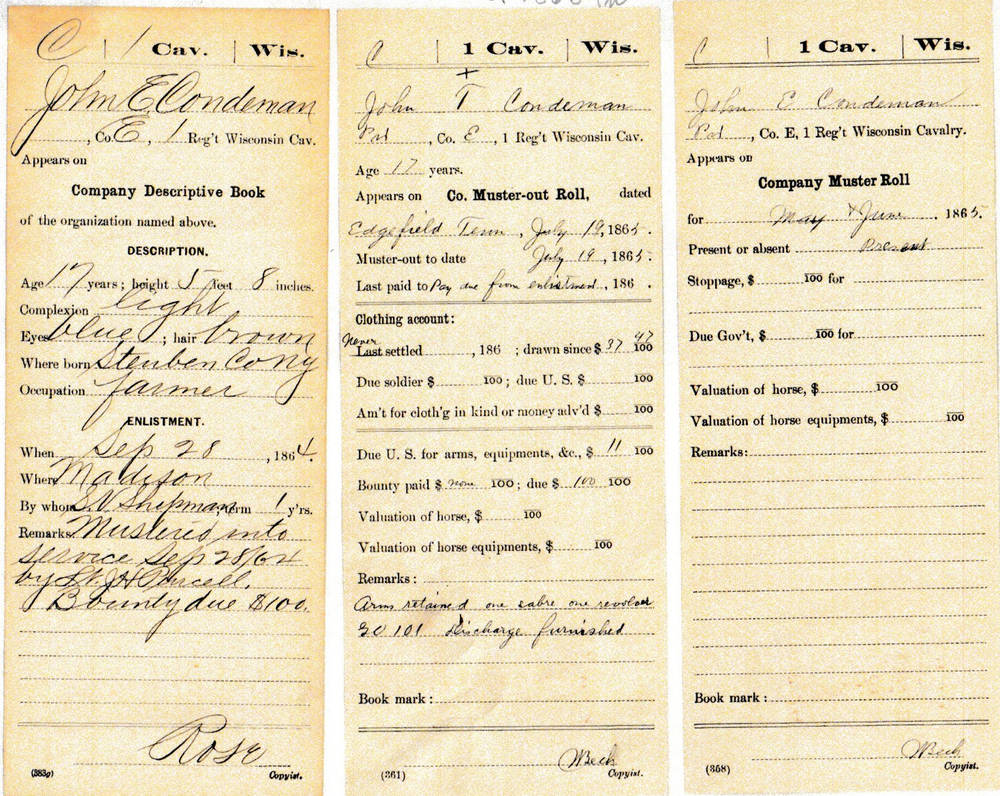 C | 1 Cav. | Wis.
John E Condeman
, Co. E, 1 Reg't Wisconsin Cav.
Appears on
Company Descriptive Book
of the organization named above.
DESCRIPTION.
Age 17 years; height 5 feet 8 inches.
Complexion light
Eyes blue; hair brown
Where born Steuben Co NY
Occupation farmer
ENLISTMENT.
When Sep 28, 1864.
Where Madison
By whom S.V. Shipman; term 1 y'rs.
Remarks Mustered into
service Sep 28/64
by Lt. J H Purcell.
Bounty due $100.
Rose
(383g) Copyist.
C | 1 Cav. | Wis.
+
John T Condeman
Pvt, Co. E, 1 Reg't Wisconsin Cav.
Age 17 years.
Appears on Co. Muster-out Roll, dated
Edgefield Tenn, July 19, 1865.
Muster-out to date July 19, 1865.
Last paid to Pay due from enlistment, 186 .
Clothing account:
Never
Last settled , 186 ; drawn since $ 37 47/100
Due soldier $ 100; due U. S. $ 100
Am't for cloth'g in kind or money adv'd $ 100
Due U. S. for arms, equipments, &c., $ 11 100
Bounty paid $ none 100; due $ 100 100
Valuation of horse, $ 100
Valuation of horse equipments, $ 100
Remarks:
Arms retained one sabre one revolver
GO 101 Discharge furnished
Book mark:
Beck
(361) Copyist.
C | 1 Cav. | Wis.
John E Condeman
Pvt, Co. E, 1 Reg't Wisconsin Cavalry.
Appears on
Company Muster Roll
for May & June, 1865.
Present or absent Present
Stoppage, $ 100 for
Due Gov't, $ 100 for
Valuation of horse, $ 100
Valuation of horse equipments, $ 100
Remarks:
Book mark:
Beck
(358) Copyist.